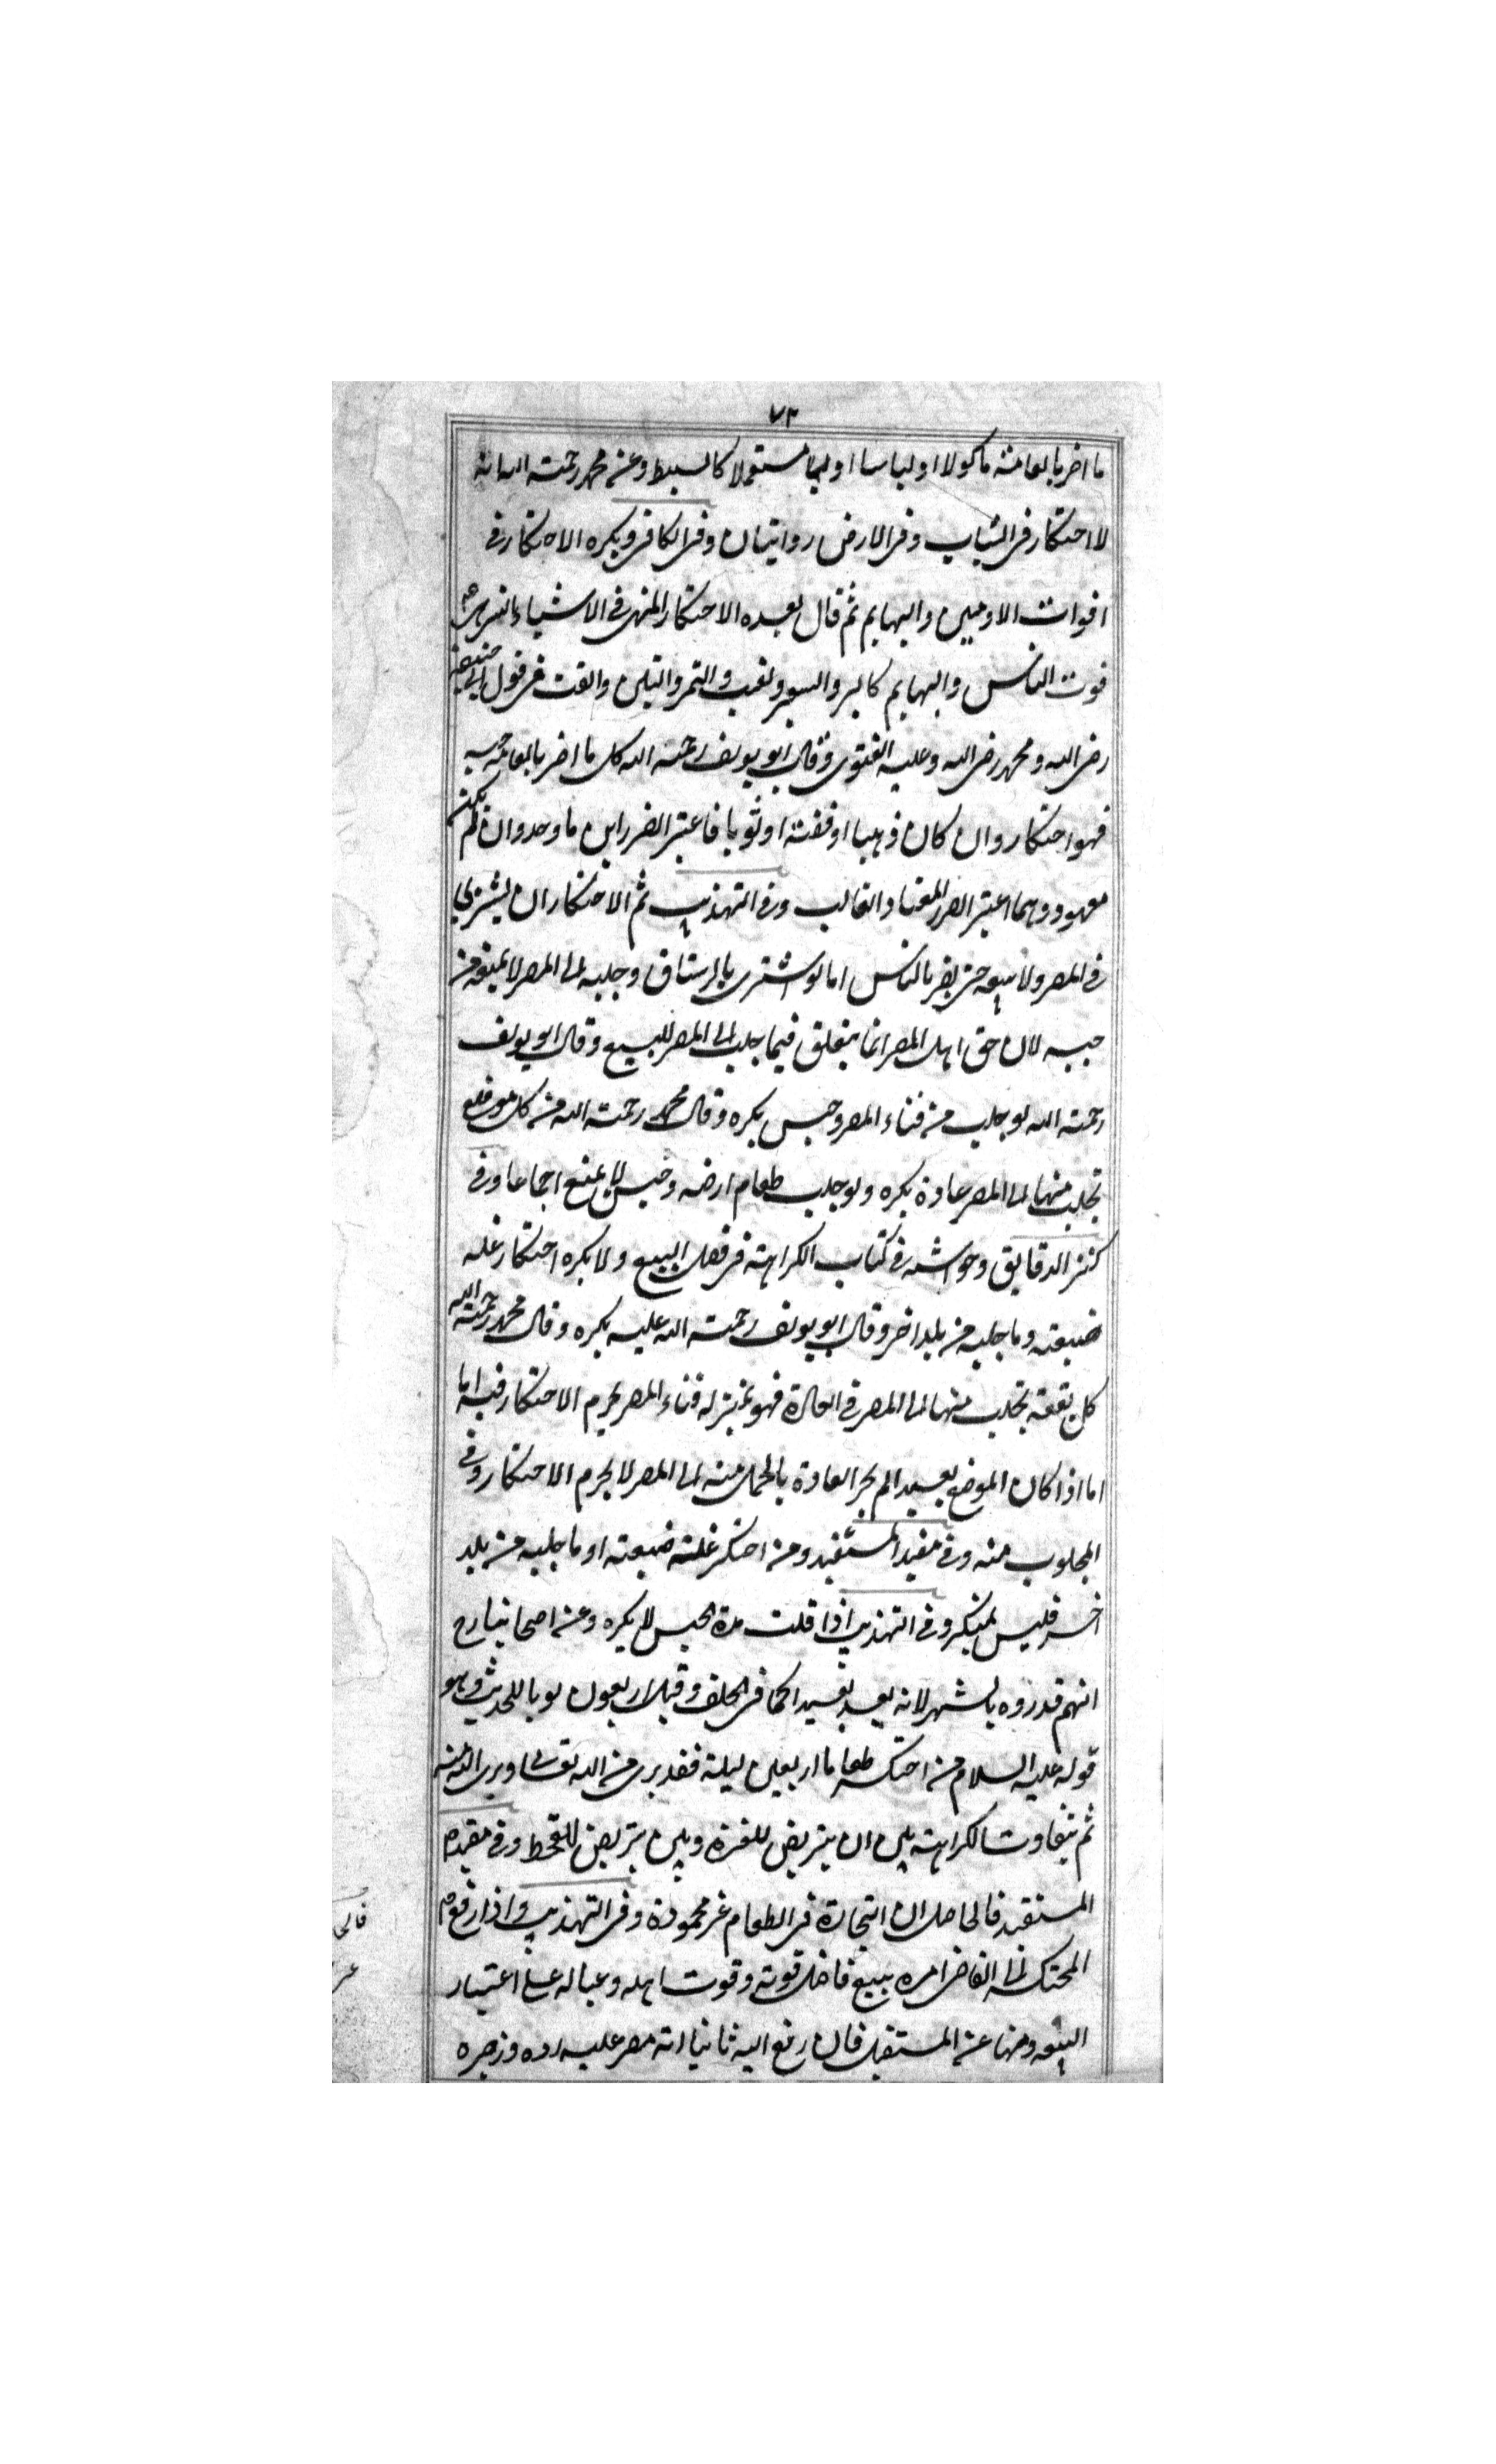 ٧٣
ما اضر بالعامته ماكولا او لباسا او مستعملا كالبسط وعن محمد رحمته الله انه
لا احتكار فى الثياب وفى الارض روايتان وفى الكافى ويكره الاحتكار فى
اقوات الادميين والبهايم ثم قال بعده الاحتكار المنهى فى الاشياء التى هى
قوت الناس والبهايم كالبر والشعير والعنب والتمر والتين والقت فى قول ابى حنيفة
رضى الله ومحمد رضى الله وعليه الفتوى وقال ابو يوسف رحمته الله كل ما اضر بالعامة حبسه
فهو احتكار وان كان ذهبا او فضته او ثوبا فاعتبر الضرر اين ما وجد وان لم يكن
معهود وهما اعتبر الضرر المعتاد الغالب وفى التهذيب ثم الاحتكار ان يشترى
فى المصر ولا يبيعه حتى يضر بالناس اما لو اشترى بالرستاق وجلبه الى المصر لا يمنع من
حبسه لان حق اهل المصر انما يتعلق فيما جلب الى المصر للبيع وقال ابو يوسف
رحمته الله لو جلب من فناء المصر وحبس يكره وقال محمد رحمته الله من كل موضع
تجلب منها الى المصر عادة يكره ولو جلب طعام ارضه وحبس لا يمنع اجماعا وفى
كنز الدقايق وحواشيه فى كتاب الكراهته فى فصل البيع ولا يكره احتكار غله
ضيعته وما جلبه من بلد اخر وقال ابو يوسف رحمته الله عليه يكره وقال محمد رحمته الله
كل بقعته تجلب منها الى المصر فى العادة فهو بمنزله فناء المصر يحرم الاحتكار فيه اما
اما اذا كان الموضع بعيدا لم يجر العادة بالحمل منه الى المصر لا يحرم الاحتكار وفى
المجلوب منه وفى مفيد المستفيد ومن احتكر غلته ضيعته او ما جلبه من بلد
اخر فليس بمحتكر وفى التهذيب اذا قلت مدة الحبس لا يكره وعن اصحابنا رح
انهم قدروه بالشهر لانه بعد بعيدا كما فى الحلف وقيل اربعون يوما للحديث وهو
قوله عليه السلام من احتكر طعاما اربعين ليلته فقد برى من الله تعالى وبرى الله منه
ثم يتفاوت الكراهته بين ان يتربص للعزة وبين يتربص للقحط وفى مفيد
المستفيد فالحاصل ان التجارة فى الطعام غير محمودة وفى التهذيب واذا رفع
المحتكر الى القاضى امره ببيع فاضل قوته وقوت اهله وعياله على اعتبار
السعه ونهى عن المستقبل فان رفع اليه ثانيا انه مصر عليه رده وزجره